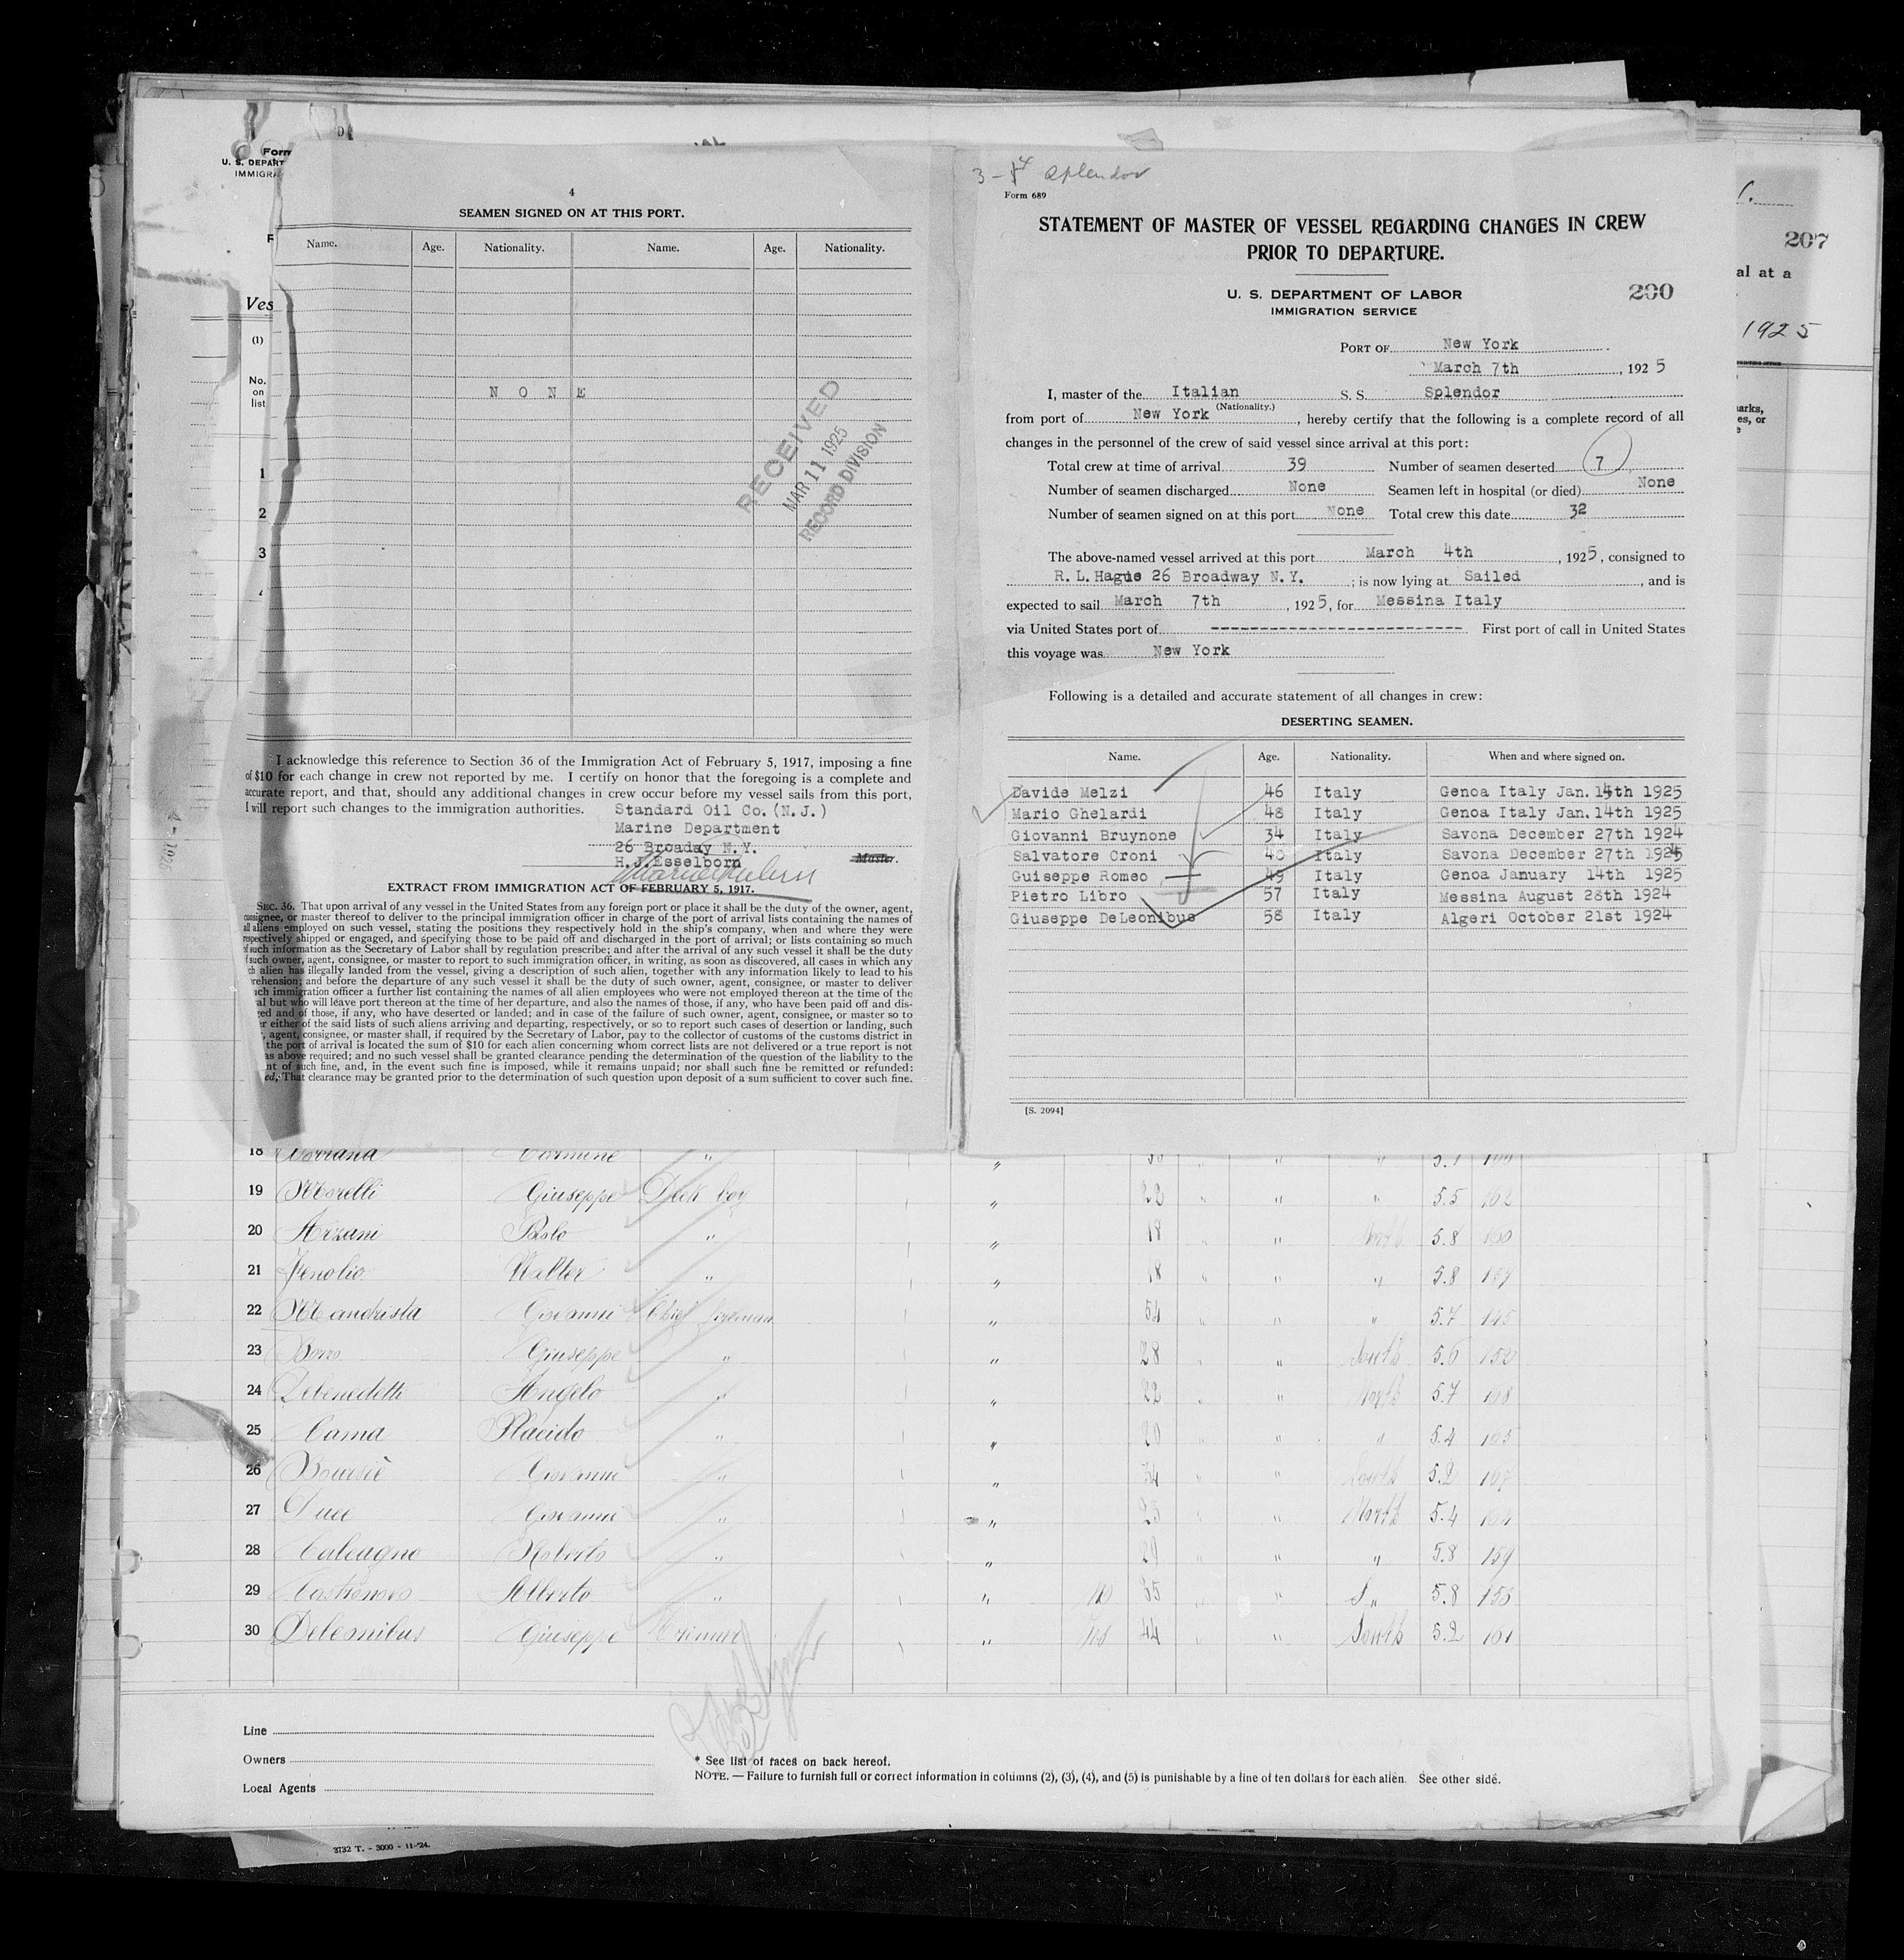 Form
U. S. DEPART
IMMIGRA
4
SEAMEN SIGNED ON AT THIS PORT.
Name. Age. Nationality. Name. Age. Nationality.
Ves
(1)
No.
on
list
N O N E
RECEIVED
MAR 11 1925
RECORD DIVISION
1
2
3
I acknowledge this reference to Section 36 of the Immigration Act of February 5, 1917, imposing a fine
of $10 for each change in crew not reported by me. I certify on honor that the foregoing is a complete and
accurate report, and that, should any additional changes in crew occur before my vessel sails from this port,
I will report such changes to the immigration authorities. Standard Oil Co.(N.J.)
Marine Department
26 Broaday N.Y.
H.J.Esselborn Master.
EXTRACT FROM IMMIGRATION ACT OF FEBRUARY 5, 1917.
SEC. 36. That upon arrival of any vessel in the United States from any foreign port or place it shall be the duty of the owner, agent,
consignee, or master thereof to deliver to the principal immigration officer in charge of the port of arrival lists containing the names of
all aliens employed on such vessel, stating the positions they respectively hold in the ship's company, when and where they were
respectively shipped or engaged, and specifying those to be paid off and discharged in the port of arrival; or lists containing so much
of such information as the Secretary of Labor shall by regulation prescribe; and after the arrival of any such vessel it shall be the duty
f such owner, agent, consignee, or master to report to such immigration officer, in writing, as soon as discovered, all cases in which any
ch alien has illegally landed from the vessel, giving a description of such alien, together with any information likely to lead to his
rehension; and before the departure of any such vessel it shall be the duty of such owner, agent, consignee, or master to deliver
uch immigration officer a further list containing the names of all alien employees who were not employed thereon at the time of the
al but who will leave port thereon at the time of her departure, and also the names of those, if any, who have been paid off and dis-
ged and of those, if any, who have deserted or landed; and in case of the failure of such owner, agent, consignee, or master so to
er either of the said lists of such aliens arriving and departing, respectively, or so to report such cases of desertion or landing, such
, agent, consignee, or master shall, if required by the Secretary of Labor, pay to the collector of customs of the customs district in
the port of arrival is located the sum of $10 for each alien concerning whom correct lists are not delivered or a true report is not
as above required; and no such vessel shall be granted clearance pending the determination of the question of the liability to the
nt of such fine, and, in the event such fine is imposed, while it remains unpaid; nor shall such fine be remitted or refunded:
ed, That clearance may be granted prior to the determination of such question upon deposit of a sum sufficient to cover such fine.
3-4 Splendor
Form 689
STATEMENT OF MASTER OF VESSEL REGARDING CHANGES IN CREW
PRIOR TO DEPARTURE.
U. S. DEPARTMENT OF LABOR
IMMIGRATION SERVICE
200
PORT OF New York
March 7th, 1925
I, master of the Italian S. S. Splendor
(Nationality.)
from port of New York, hereby certify that the following is a complete record of all
changes in the personnel of the crew of said vessel since arrival at this port:
Total crew at time of arrival 39 Number of seamen deserted 7
Number of seamen discharged None Seamen left in hospital (or died) None
Number of seamen signed on at this port None Total crew this date 32
The above-named vessel arrived at this port March 4th, 1925, consigned to
R.L.Hague 26 Broadway N.Y.; is now lying at Sailed, and is
expected to sail March 7th, 1925, for Messina Italy
via United States port of ------------------------ First port of call in United States
this voyage was New York
Following is a detailed and accurate statement of all changes in crew:
DESERTING SEAMEN.
Name. Age. Nationality. When and where signed on.
Davide Melzi 46 Italy Genoa Italy Jan. 14th 1925
Mario Ghelardi 48 Italy Genoa Italy Jan.14th 1925
Giovanni Bruynone 34 Italy Savona December 27th 1924
Salvatore Croni 48 Italy Savona December 27th 1924
Guiseppe Romeo 49 Italy Genoa January 14th 1925
Pietro Libro 57 Italy Messina August 28th 1924
Giuseppe DeLeonibus 58 Italy Algeri October 21st 1924
[S. 2094]
207
al at a
1925
arks,
es, or
18
19 Morelli Giuseppe Deck boy " 22 " " " 5.5 162
20 Arzani Paolo " " 18 " North 5.8
21 Fenolio Walter " " 18 " " " 5.8
22 Mandrista Giovanni Chief fireman " 54 " " " 5.7 145
23 Borro Giuseppe " " 28 " " South 5.6 152
24 Debenedetti Angelo " " 22 " " North 5.7
25 Cama Placido " " 20 " " " 5.4
26 Giovanni " " 34 " " South 5.2
27 Duce Giovanni " " 23 " " North 5.4
28 Calcagno Roberto " " 29 " " " 5.8 159
29 Alberto " " no 35 " " S " 5.8 155
30 Deleonibus Giuseppe " yes 44 " " South 5.2 161
Line
Owners
Local Agents
* See list of races on back hereof.
NOTE. — Failure to furnish full or correct information in columns (2), (3), (4), and (5) is punishable by a fine of ten dollars for each alien. See other side.
3732 T. - 3000 - 11-'24.